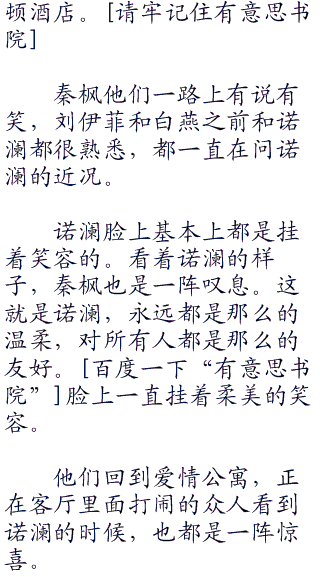 顿酒店。[请牢记住有意思书
院]
秦枫他们一路上有说有
笑，刘伊菲和白燕之前和诺
澜都很熟悉，都一直在问诺
澜的近况。
诺澜脸上基本上都是挂
着笑容的。看着诺澜的样
子，秦枫也是一阵叹息。这
就是诺澜，永远都是那么的
温柔，对所有人都是那么的
友好。[百度一下“有意思书
院”]脸上一直挂着柔美的笑
容。
他们回到爱情公寓，正
在客厅里面打闹的众人看到
诺澜的时候，也都是一阵惊
喜。